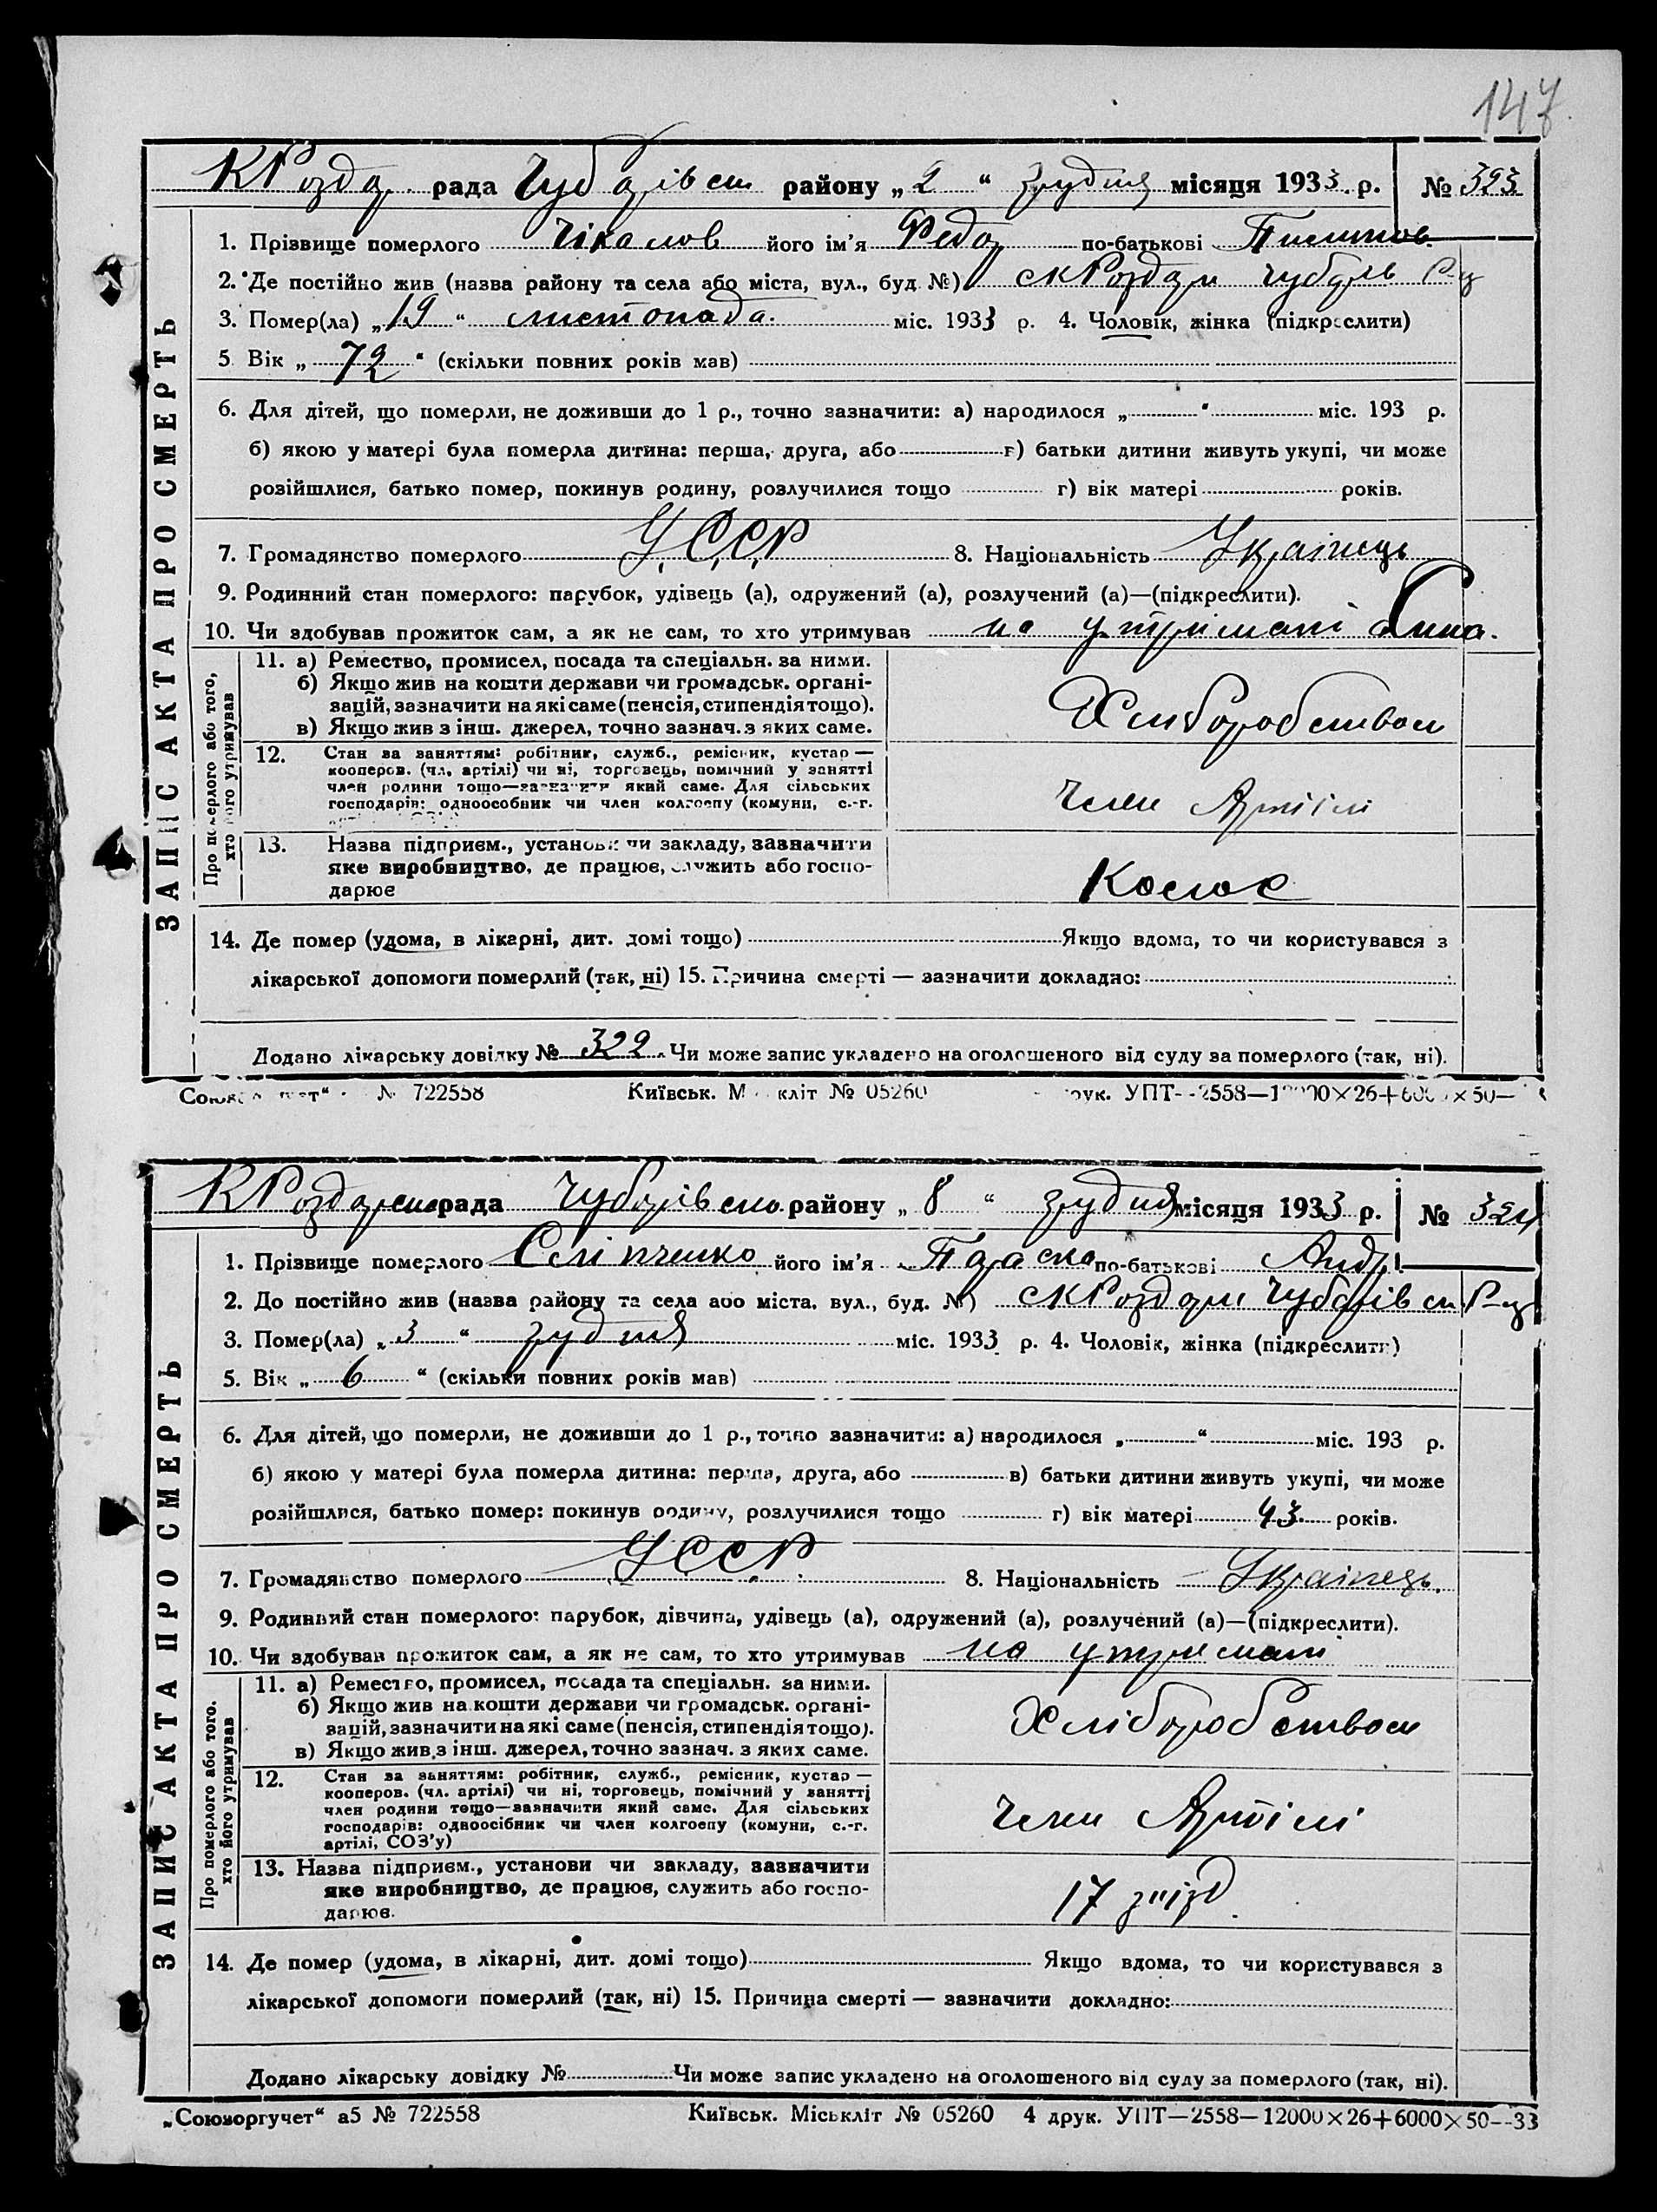 147
КРоздор. рада Чубарівськ району „ 2 “ грудня місяця 1933. р. № 323
1. Прізвище померлого Чікалов його ім'я Федор по-батькові
2. Де постійно жив (назва району та села або міста, вул., буд. №) с КРоздори Чубарів Р-ц
3. Помер(ла) „ 19 “ листопада. міс. 1933 р. 4. Чоловік, жінка (підкреслити)
5 Вік „ 72 “ (скільки повних років мав)
6. Для дітей, що померли, не доживши до 1 р., точно зазначити: а) народилося „ “ міс. 193 р.
б) якою у матері була померла дитина: перша, друга, або в) батьки дитини живуть укупі, чи може
розійшлися, батько помер, покинув родину, розлучилися тощо г) вік матері років.
7. Громадянство померлого У.С.С.Р 8. Національність Українець
9. Родинний стан померлого: парубок, удівець (а), одружений (а), розлучений (а)—(підкреслити).
10. Чи здобував прожиток сам, а як не сам, то хто утримував на утримані Сина.
Про померлого або того, хто його утримував
11. а) Ремество, промисел, посада та спеціальн. за ними.
б) Якщо жив на кошти держави чи громадськ. органі-
зацій, зазначити на які саме (пенсія, стипендія тощо).
в) Якщо жив з інш. джерел, точно зазнач. з яких саме.
Хліборобством
12. Стан за заняттям: робітник, служб., ремісник, кустар —
кооперов. (чл. артілі) чи ні, торговець, помічний у занятті
член родини тощо—зазначити який саме. Для сільських
господарів: одноособник чи член колгоспу (комуни, с.-г.
Член Артілі
13. Назва підприєм., установи чи закладу, зазначити
яке виробництво, де працює, служить або госпо-
дарює
Колос
14. Де помер (удома, в лікарні, дит. домі тощо) Якщо вдома, то чи користувався з
лікарської допомоги померлий (так, ні) 15. Причина смерті — зазначити докладно:
Додано лікарську довідку № 322 Чи може запис укладено на оголошеного від суду за померлого (так, ні).
ЗАПИС АКТА ПРО СМЕРТЬ
№ 722558 Київськ. М кліт № 05260 друк. УПТ—2558—12000×26+6000×50—
КРоздорська рада Чубарівсько району „ 8 “ грудня місяця 1933 р. № 324
1. Прізвище померлого Сліпченко його ім'я Параска по-батькові Андр.
2. До постійно жив (назва району та села або міста, вул., буд. №) с КРоздори Чубарівськ Р-ц
3. Помер(ла) „ 3 “ грудня міс. 1933 р. 4. Чоловік, жінка (підкреслити)
5. Вік „ 6 “ (скільки повних років мав)
6. Для дітей, що померли, не доживши до 1 р., точно зазначити: а) народилося „ “ міс. 193 р.
б) якою у матері була померла дитина: перша, друга, або в) батьки дитини живуть укупі, чи може
розійшлися, батько помер: покинув родину, розлучилися тощо г) вік матері 43 років.
7. Громадянство померлого УССР 8. Національність Українець.
9. Родинний стан померлого: парубок, дівчина, удівець (а), одружений (а), розлучений (а)—(підкреслити).
10. Чи здобував прожиток сам, а як не сам, то хто утримував на утримані
Про померлого або того. хто його утримував
11. а) Ремество, промисел, посада та спеціальн. за ними.
б) Якщо жив на кошти держави чи громадськ. органі-
зацій, зазначити на які саме (пенсія, стипендія тощо).
в) Якщо жив з інш. джерел, точно зазнач. з яких саме.
Хліборобством
12. Стан за заняттям: робітник, служб., ремісник, кустар —
кооперов. (чл. артілі) чи ні, торговець, помічний у занятті
член родини тощо—зазначити який саме. Для сільських
господарів: одноосібник чи член колгоспу (комуни, с.-г.
артілі, СОЗ'у)
Член Артілі
13. Назва підприєм., установи чи закладу, зазначити
яке виробництво, де працює, служить або госпо-
дарює.
17 з'їзд.
14. Де помер (удома, в лікарні, дит. домі тощо) Якщо вдома, то чи користувався з
лікарської допомоги померлий (так, ні) 15. Причина смерті — зазначити докладно:
Додано лікарську довідку № Чи може запис укладено на оголошеного від суду за померлого (так, ні).
ЗАПИС АКТА ПРО СМЕРТЬ
„Союзоргучет“ а5 № 722558 Київськ. Міськліт № 05260 4 друк. УПТ—2558—12000×26+6000×50—33